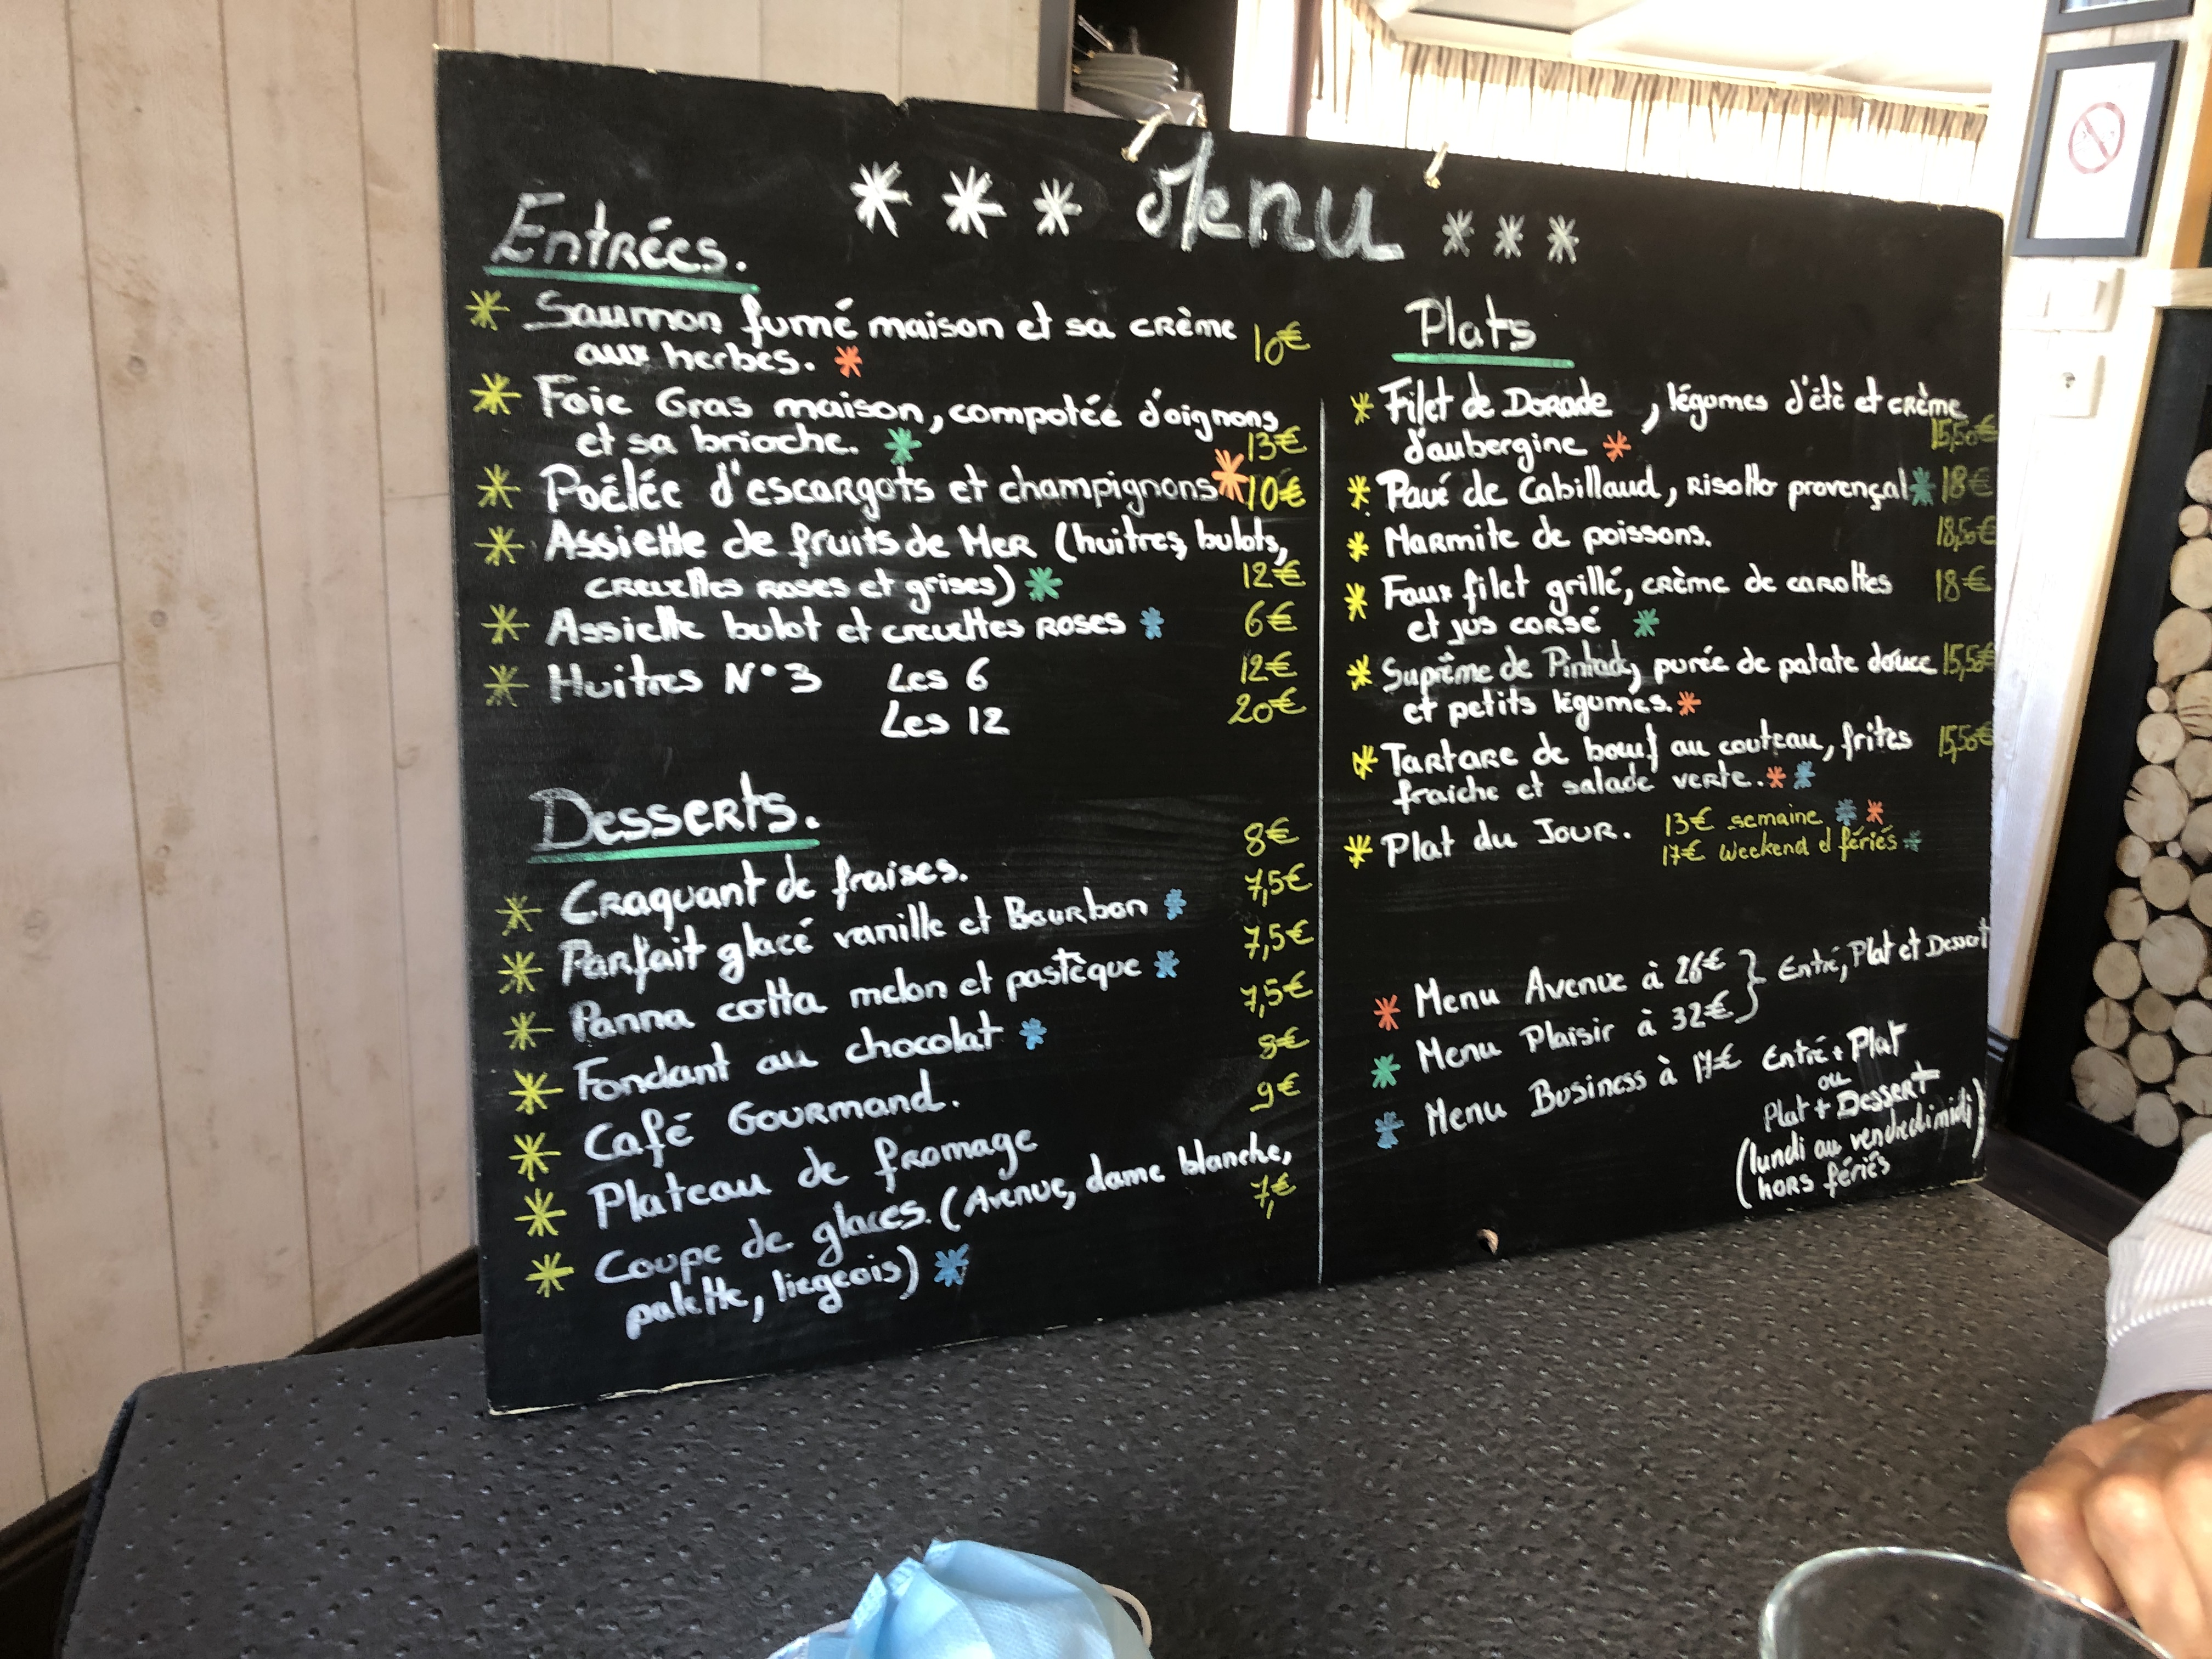 Menu
Entrées.
Saumon fumé maison et sa crème 10€
aux herbes.
Foie Gras maison, compotée d'oignons
et sa brioche. 13€
Poélée d'escargots et champignons 10€
Assiette de fruits de Mer (huitres, bulots,
crevettes roses et grises) 12€
Assiette bulot et crevettes roses 6€
Huitres N°3 Les 6 12€
Les 12 20€
Desserts.
8€
Craquant de fraises. 7,5€
Parfait glacé vanille et Bourbon 7,5€
Panna cotta melon et pastèque 7,5€
Fondant au chocolat 8€
Café Gourmand. 9€
Plateau de fromage
Coupe de glaces. (Avenue, dame blanche, 7€
palette, liegeois)
Plats
Filet de Dorade , légumes d'étè et crème
d'aubergine 15,50€
Pavé de Cabillaud, risotto provençal 18€
Marmite de poissons. 18,50€
Faux filet grillé, crème de carottes 18€
et jus corsé
Suprême de Pintade, purée de patate douce 15,50€
et petits légumes.
Tartare de bœuf au couteau, frites 15,50€
fraiche et salade verte.
Plat du Jour. 13€ semaine
17€ Weekend et fériés
Menu Avenue à 26€ } Entré, Plat et Dessert
Menu Plaisir à 32€
Menu Business à 17€ Entré + Plat
ou
Plat + Dessert
(lundi au vendredi midi)
hors fériés